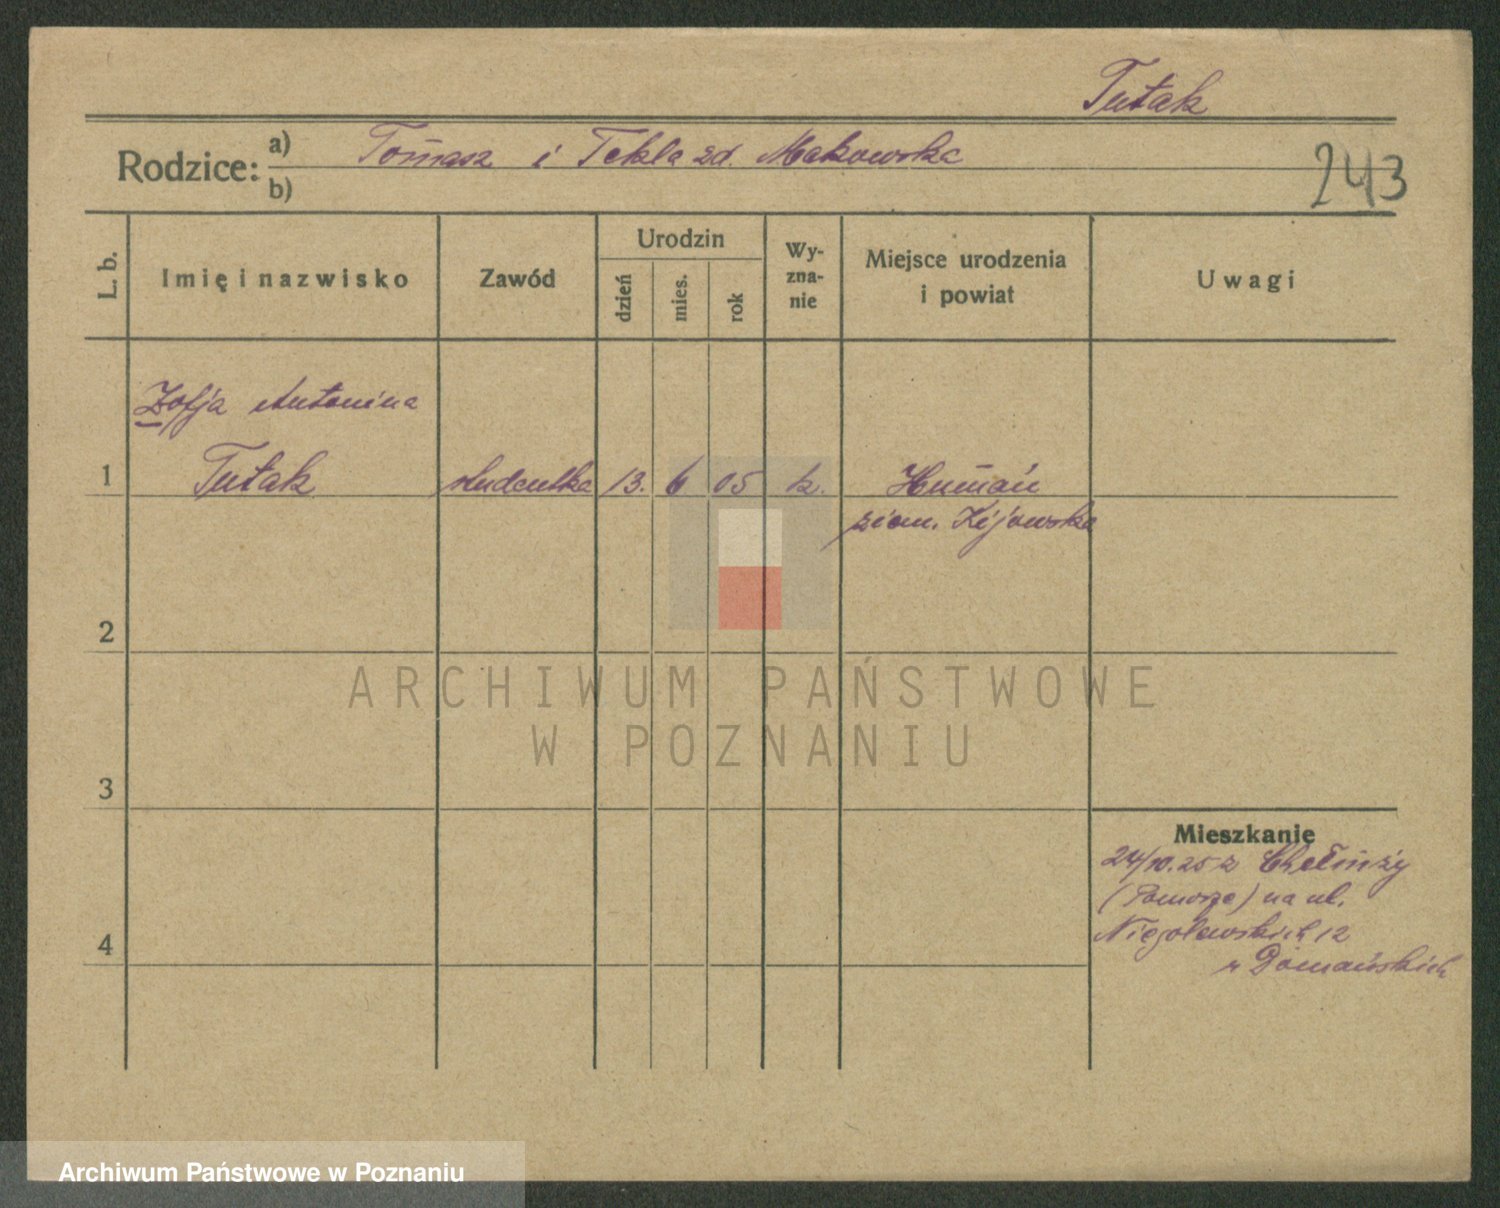 Tutak
Rodzice: a) Tomasz i Tekla zd. Makowska
b)
243
L. b.
Imię i nazwisko
Zawód
Urodzin
dzień
mies.
rok
Wy-
zna-
nie
Miejsce urodzenia
i powiat
Uwagi
Zofja Antonina
1 Tutak studentka 13. 6 05 k. Humań
ziem. Kijowska
2
ARCHIWUM PAŃSTWOWE
W POZNANIU
3
Mieszkanie
24/10.25 z Chełmży
(Pomorze) na ul.
Niegolewskich 12
4
u Domańskich
Archiwum Państwowe w Poznaniu